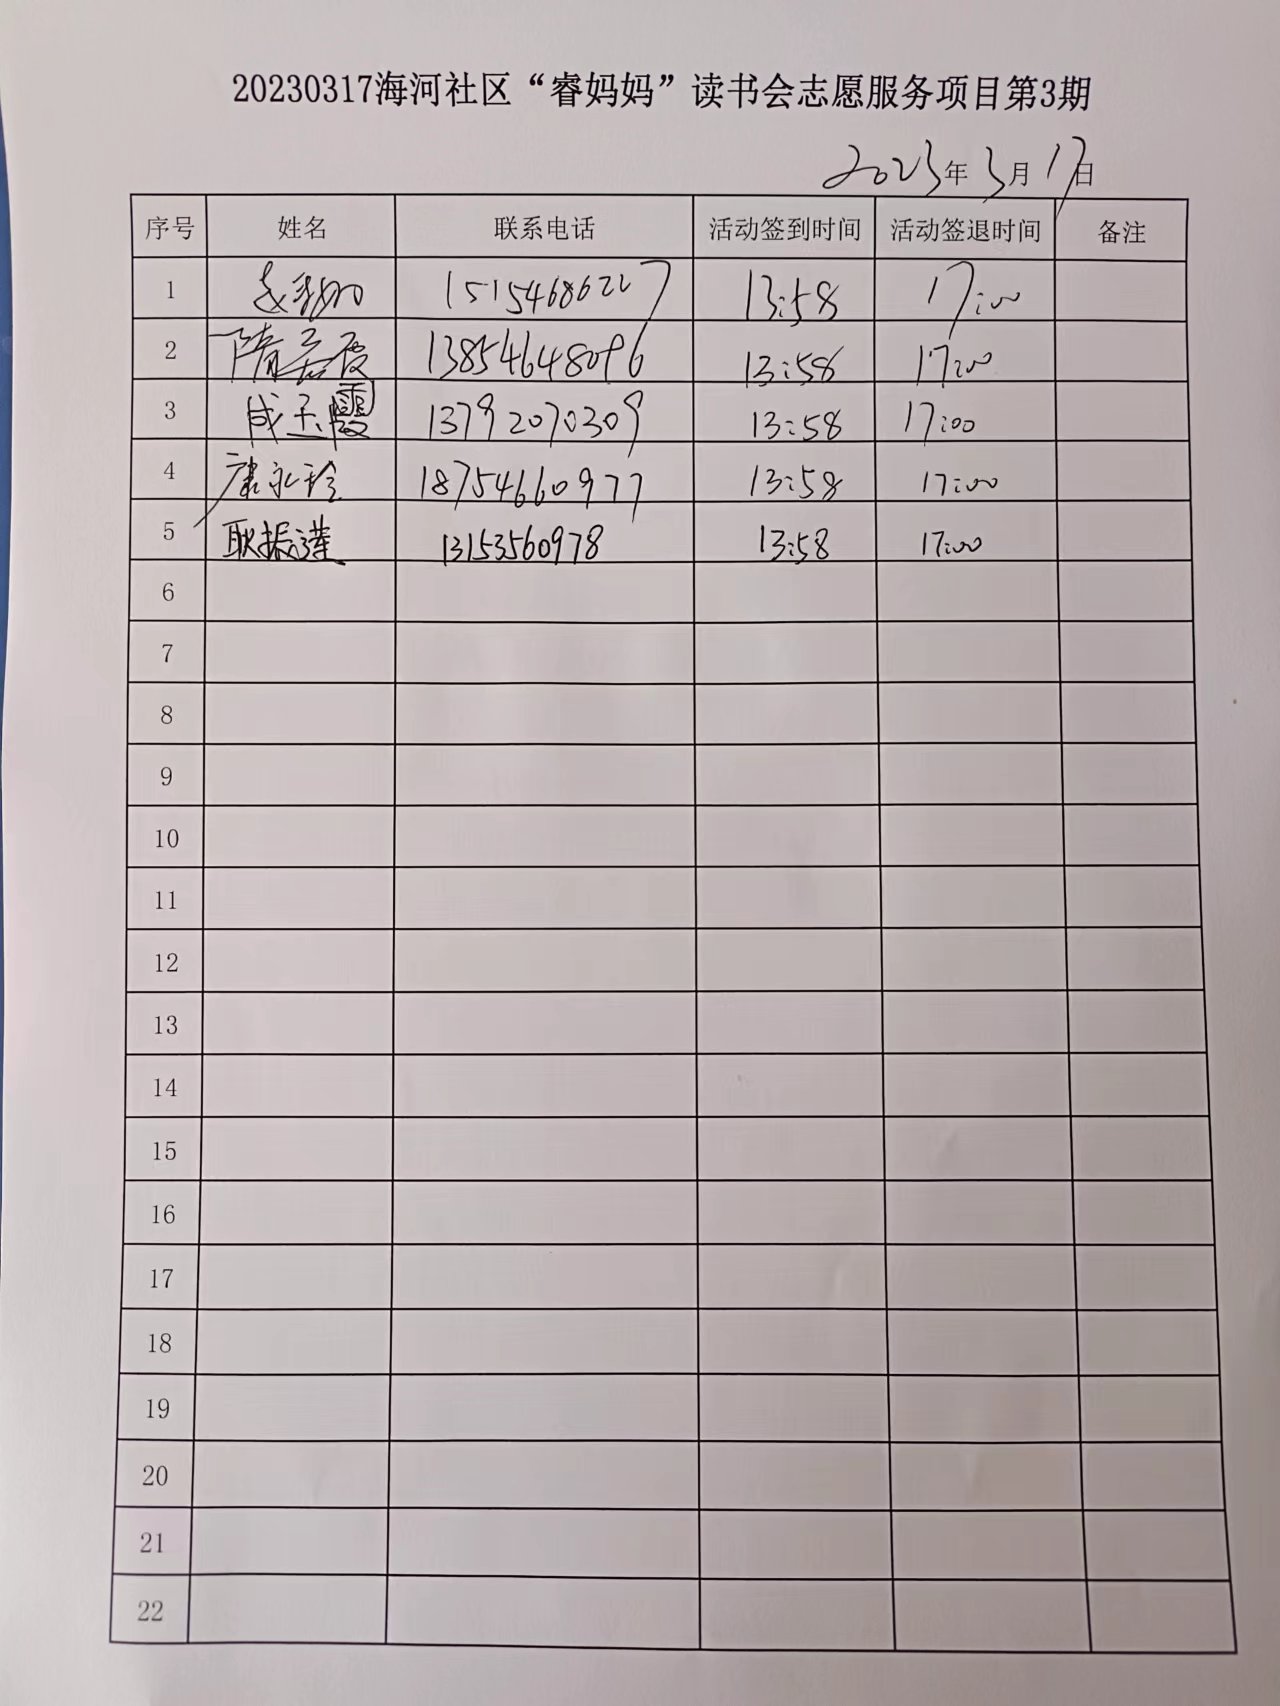 20230317海河社区“睿妈妈”读书会志愿服务项目第3期
2023年3月17日
序号 姓名 联系电话 活动签到时间 活动签退时间 备注
1 15154686227 13:58 17:00
2 隋 霞 13854648096 13:58 17:00
3 成玉霞 13792070309 13:58 17:00
4 康永玲 18754660977 13:58 17:00
5 耿振莲 13153560978 13:58 17:00
6
7
8
9
10
11
12
13
14
15
16
17
18
19
20
21
22